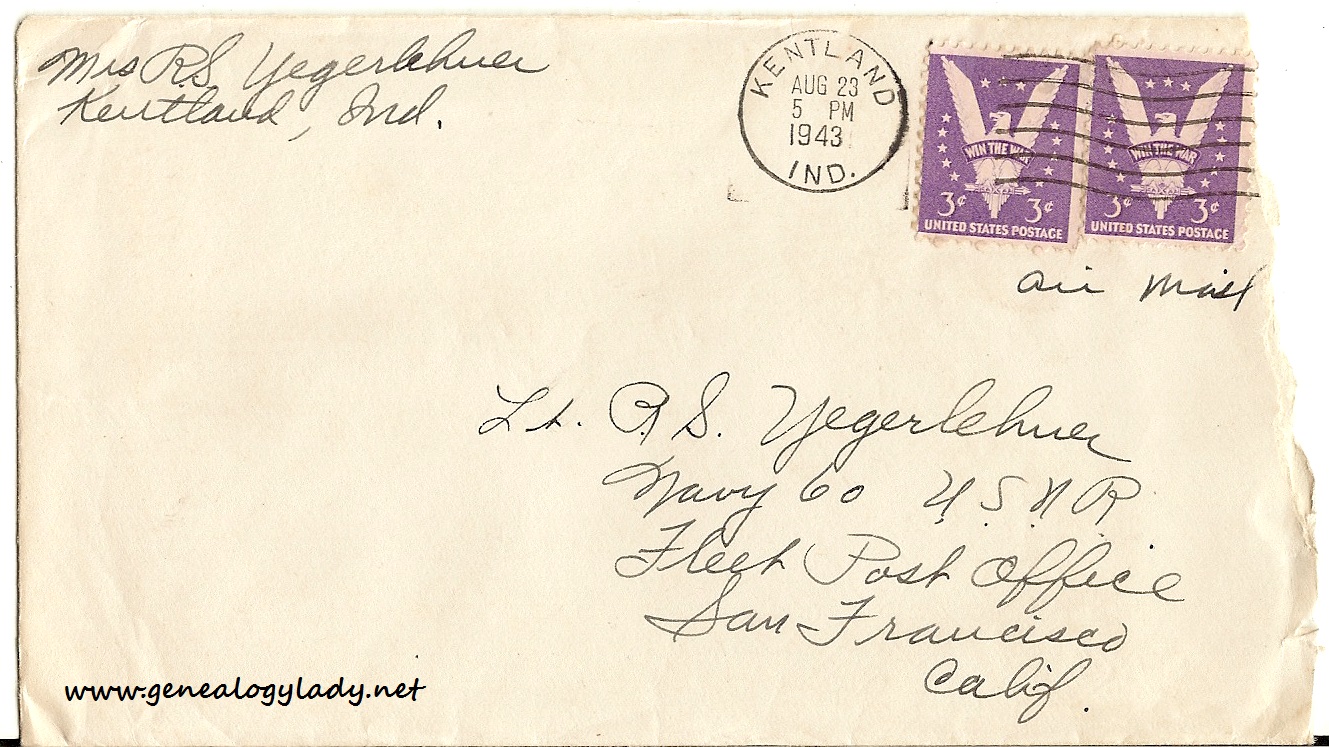 Mrs R.S. Yegerlehner
Kentland, Ind.
KENTLAND
AUG 23
5 PM
1943
IND.
WIN THE WAR
3¢ 3¢
UNITED STATES POSTAGE
WIN THE WAR
3¢ 3¢
UNITED STATES POSTAGE
Air Mail
Lt. R.S. Yegerlehner
Navy 60 U.S.N.R.
Fleet Post Office
San Francisco
Calif.
www.genealogylady.net